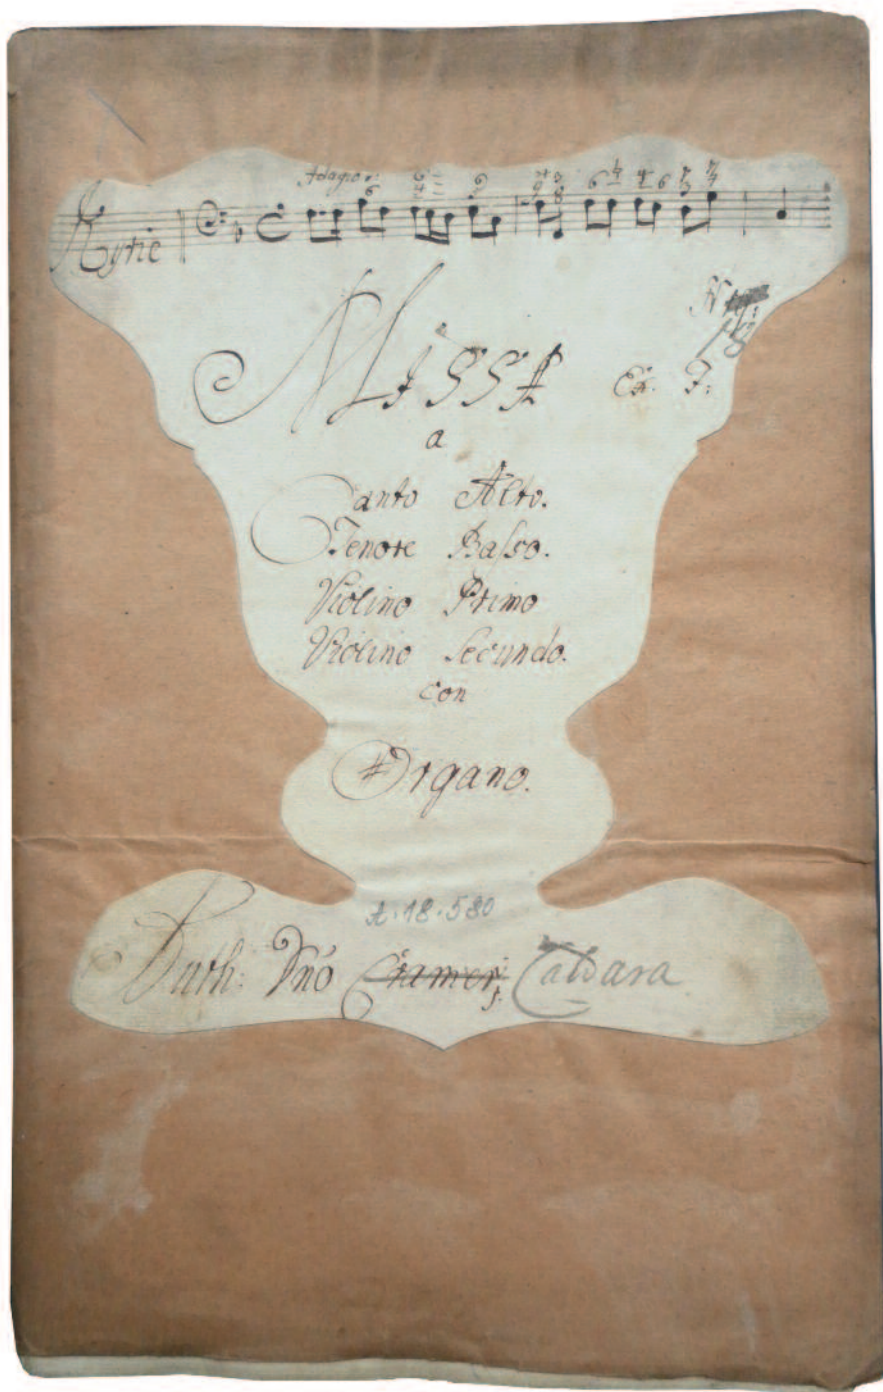 Adagio
Kyrie
18
Missa Ex. F:
a
Canto Alto.
Tenore Basso.
Violino Primo
Violino Secundo.
con
Organo.
A.18.580
Auth: Dno Cramer, Caldara